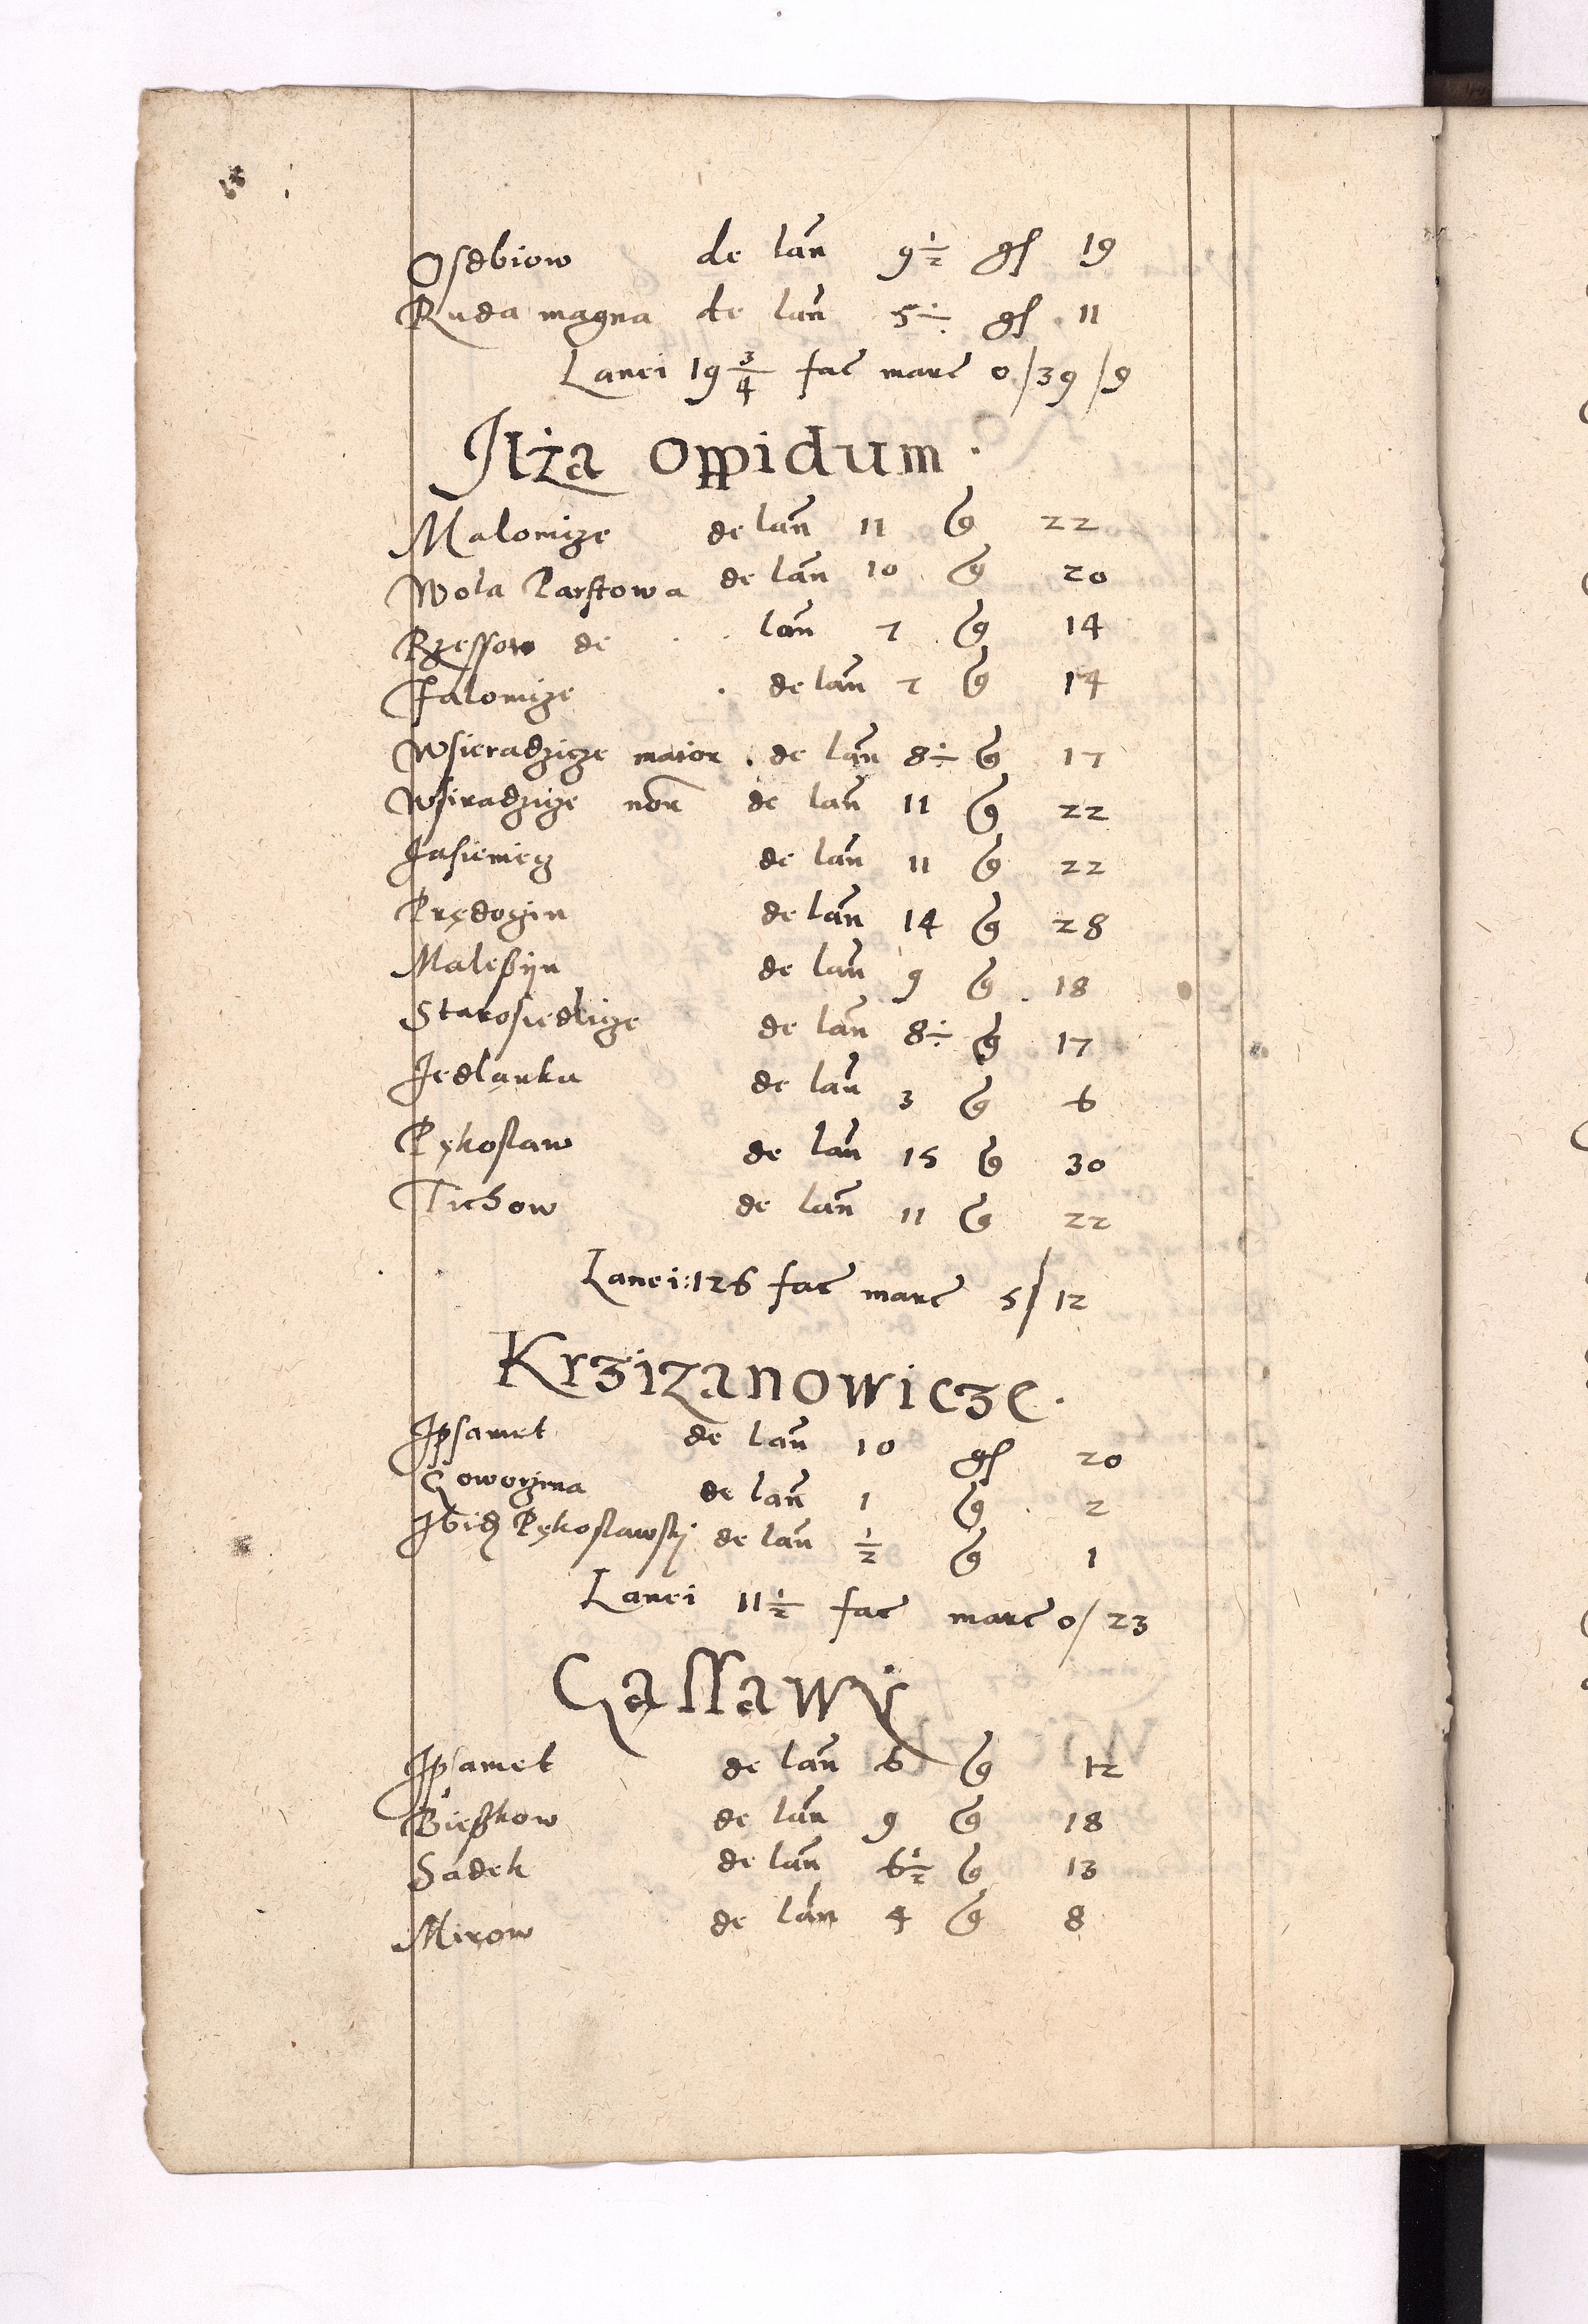 Osebiow de lan 9 1/2 gs 19
Ruda magna de lan 5 ÷ gs 11
Lanei 19 3/4 fac marc 0/39/9
Jlża oppidum.
Malomize de lan 11 g 22
Wola Parstowa de lan 10 g 20
Rzessow de lan 7 g 14
de lan 7 g 14
Wsieradzicze maior de lan 8 ÷ g 17
Wsiradzize nor de lan 11 g 22
Jasiemicz de lan 11 g 22
Prędoczin de lan 14 g 28
Maleßÿn de lan 9 g 18
Starosiedlicze de lan 8 ÷ g 17
Jedlanka de lan 3 g 6
Pękoslaw de lan 15 g 30
Tichow de lan 11 g 22
Lanei: 126 fac marc 5/12
Krzizanowicze.
Jpsamet de lan 10 gs 20
Goworzina de lan 1 g 2
Jbid Pękoslawskj de lan 1/2 g 1
Lanei 11 1/2 fac marc 0/23
Gąssawÿ
Jpsamet de lan 6 g 12
Bießkow de lan 9 g 18
Sadek de lan 6 1/2 g 13
Mirow de lan 4 g 8